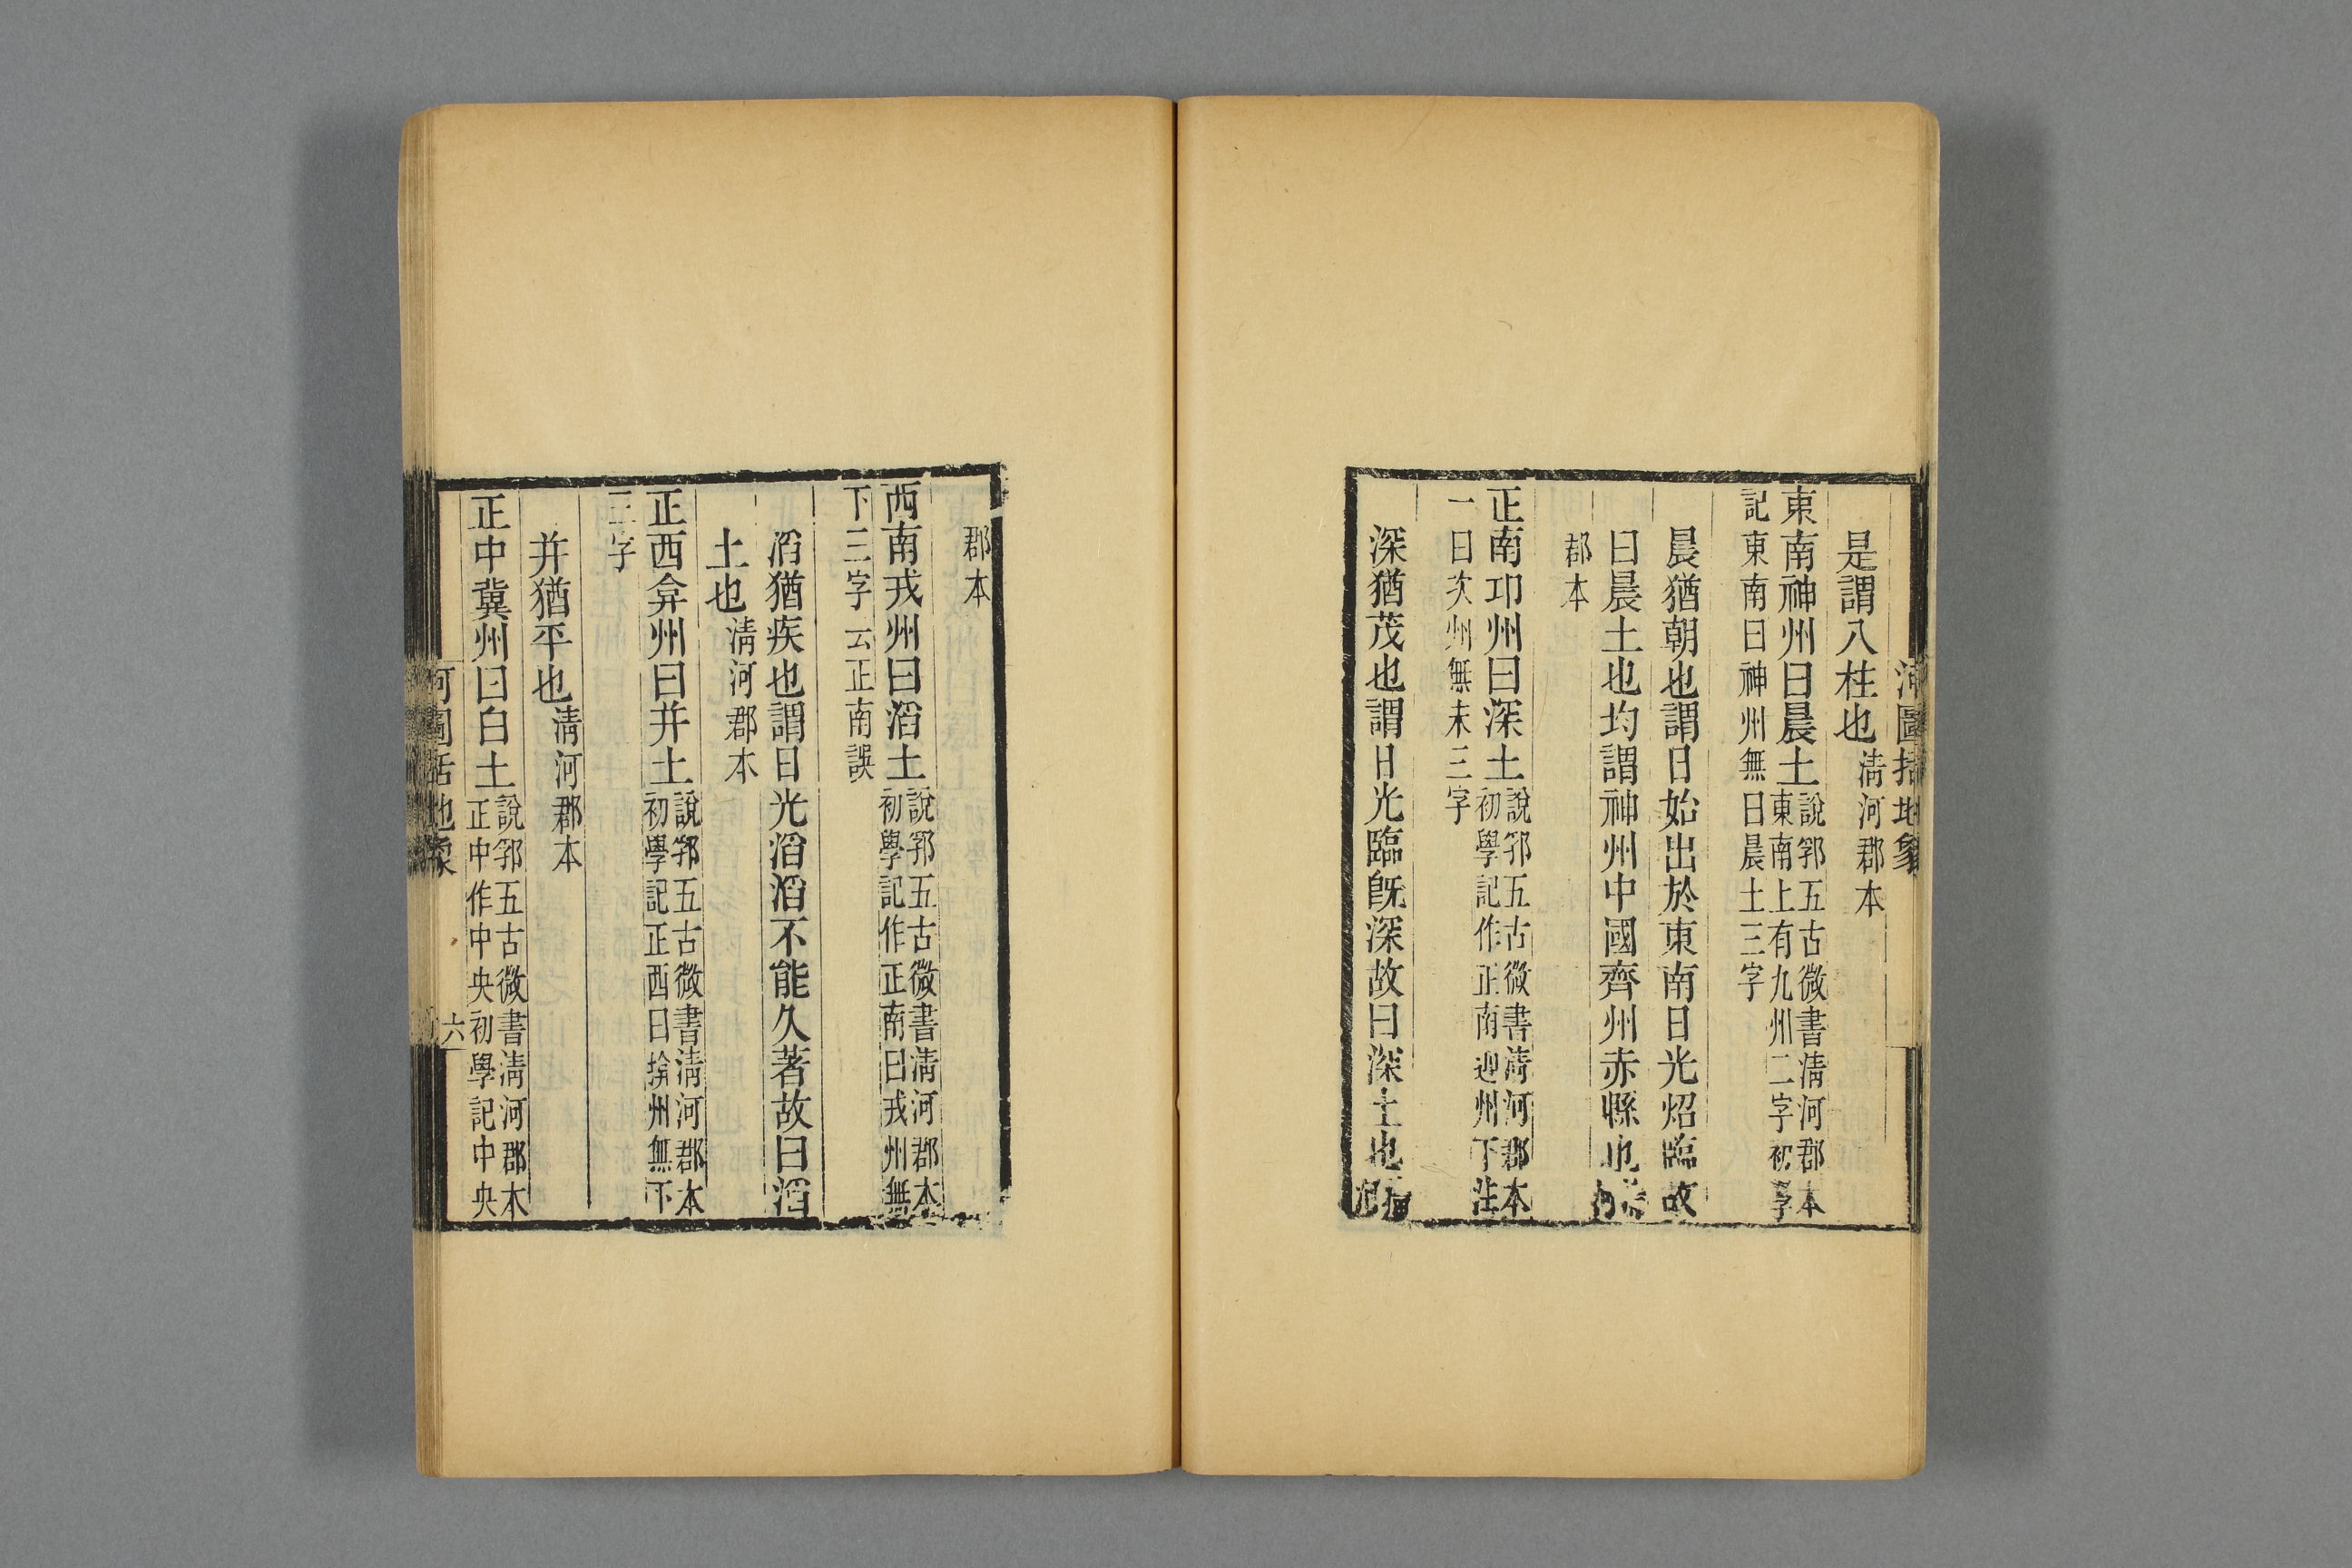 河圖括地象
是謂八柱也清河郡本
東南神州曰晨土說郛五古微書清河郡本
東南上有九州二字初學
記東南曰神州無曰晨土三字
晨猶朝也謂日始出於東南日光炤臨故
曰晨土也均謂神州中國齊州赤縣也清河
郡本
正南卭州曰深土說郛五古微書清河郡本
初學記作正南迎州下注
一曰次州無末三字
深猶茂也謂日光臨旣深故曰深土也清河
郡本
西南戎州曰滔土說郛五古微書清河郡本
初學記作正南曰戎州無
下三字云正南誤
滔猶疾也謂日光滔滔不能久著故曰滔
土也清河郡本
正西弇州曰并土說郛五古微書清河郡本
初學記正西曰揜州無下
三字
并猶平也清河郡本
正中冀州曰白土說郛五古微書清河郡本
正中作中央初學記中央
河圖括地象
六